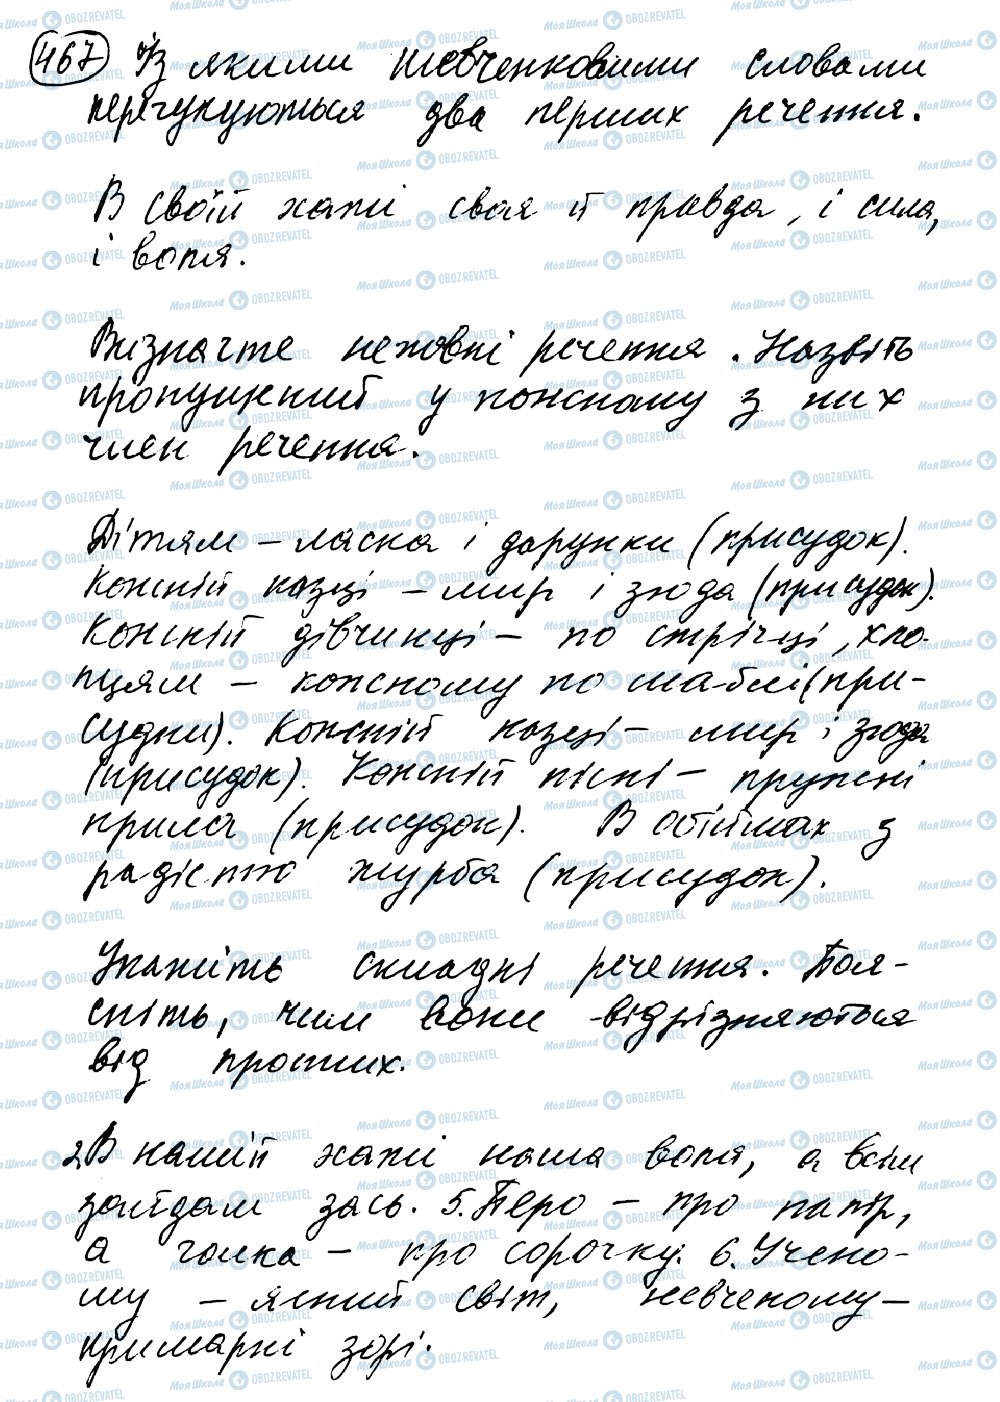 467 Із якими Шевченковими словами
перегукуються два перших речення.
В своїй хаті своя й правда, і сила,
і воля.
Визначте неповні речення. Назвіть
пропущений у кожному з них
член речення.
Дітям – ласка і дарунки (присудок).
Кожній казці – мир і згода (присудок).
Кожній дівчинці – по стрічці, хло-
пцям – кожному по шаблі (при-
судки). Кожній казці – мир і згода
(присудок). Кожній пісні – пружні
крила (присудок). В обіймах з
радістю журба (присудок).
Укажіть складні речення. Поя-
сніть, чим вони відрізняються
від простих.
2. В нашій хаті наша воля, а всім
зайдам зась. 5. Перо – про папір,
а голка – про сорочку. 6. Учено-
му – ясний світ, невченому –
примарні зорі.